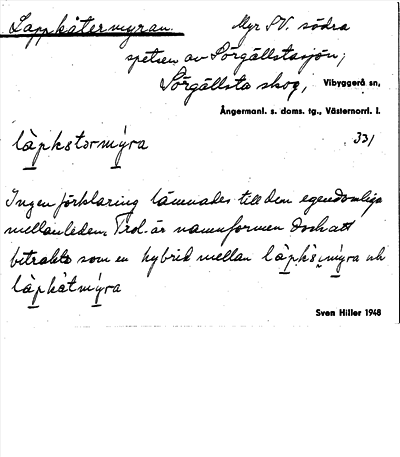 Lappkåtermyran. Myr SV. södra
spetsen av Sörgällstasjön,
Sörgällsta skog, Vibyggerå sn,
Ångermanl. s. doms. tg., Västernorrl. l.
làpkstormýra 33/
Ingen förklaring lämnades till den egendomliga
mellanleden. Trol. är namnformen dock att
betrakta som en hybrid mellan làpks,,mýra och
làpkåtmýra
Sven Hiller 1948